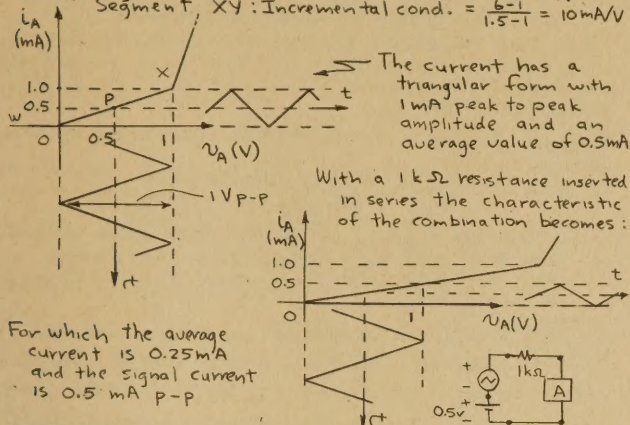 Segment XY: Incremental cond. = 6-1/1.5-1 = 10mA/V
iA
(mA)
X
1.0
P
t
0.5
W
0
0.5
1
vA(V)
The current has a
triangular form with
1mA peak to peak
amplitude and an
average value of 0.5mA
1V p-p
t
With a 1kΩ resistance inserted
in series the characteristic
of the combination becomes:
iA
(mA)
1.0
t
0.5
0
1
vA(V)
t
For which the average
current is 0.25mA
and the signal current
is 0.5 mA p-p
+
-
+
-
0.5v
1kΩ
+
A
-